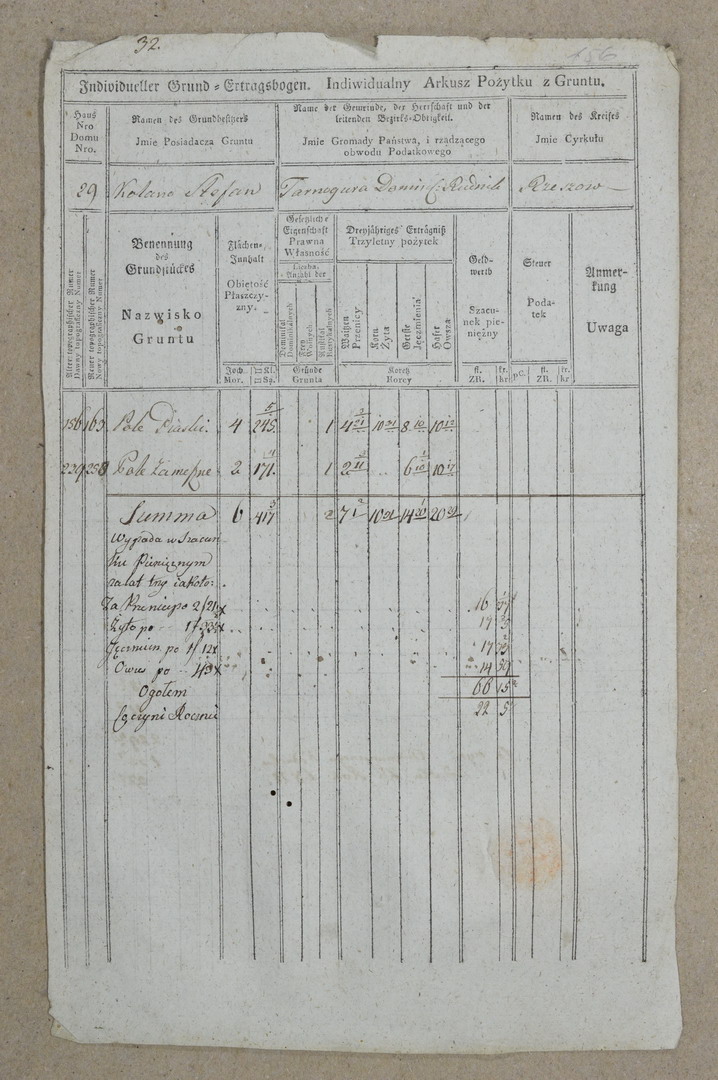 32.
156
Individueller Grund-Ertragsbogen. Indiwidualny Arkusz Pożytku z Gruntu.
Haus Nro Domu Nro.
Namen des Grundbesitzers
Jmie Posiadacza Gruntu
Name der Gemeinde, der Herrschaft und der
leitenden Bezirks-Obrigkeit.
Jmie Gromady Państwa, i rządzącego
obwodu Podatkowego
Namen des Kreises
Jmie Cyrkułu
29 Kolano Stefan Tarnogura Domin: Rudnik Rzeszow
Alter topographischer Numer
Dawny topograficzny Numer
Neuer topographischer Numer
Nowy topograficzny Numer
Benennung
des
Grundstückes
Nazwisko
Gruntu
Flächen-
Innhalt
Obiętość
Płaszczyzny.
Joch. Mor.
□ Kl. □ Sg.
Gesetzliche
Eigenschaft
Prawna
Własność
Liczba.
Anzahl der
Dominikal
Dominikalnych
Frey
Wolnych
Rustikal
Rustykalnych
Gründe
Grunta
Dreyjähriges Erträgniß
Trzyletny pożytek
Waitzen
Przenicy
Korn
Żyta
Gerste
Jęczmienia
Hafer
Owsza
Koretz
Korcy
Geld-
werth
Szacu-
nek pie-
niężny
fl. ZR.
kr. kr
Steuer
Podatek
pC.
fl. ZR.
kr. kr
Anmerkung
Uwaga
156 163 Pole Piaski 4 245 1 4 21 10 21 8 10 10 12
229 258 Pole Zamesne 2 171 1 2 11 6 10 10 17
Summa 6 417 2 7 1 10 21 14 20 20 29
Wypada w Szacun
ku Pieniężnym
za lat trzy jakoto:
Za Przenicę po 2/21 x 16
Żyto po 17
Jęczmien po 1/12 x 17
Owies po 43 x 14 59
Ogołem 66 15
Czyni Rocznie 22 5